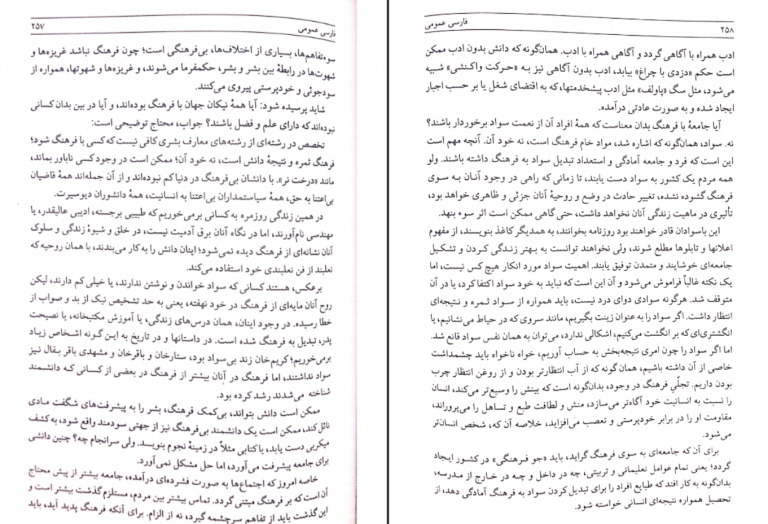 فارسی عمومی
۲۵۷
سوءتفاهم‌ها، بسیاری از اختلاف‌ها، بی‌فرهنگی است؛ چون فرهنگ نباشد غریزه‌ها و
شهوت‌ها در رابطهٔ بین بشر و بشر، حکمفرما می‌شوند، و غریزه‌ها و شهوتها، همواره از
سودجوئی و خودپرستی پیروی می‌کنند.
شاید پرسیده شود: آیا همهٔ نیکان جهان با فرهنگ بوده‌اند، و آیا در بین بدان کسانی
نبوده‌اند که دارای علم و فضل باشند؟ جواب، محتاج توضیحی است:
تخصص در رشته‌ای از رشته‌های معارف بشری کافی نیست که کسی با فرهنگ شود؛
فرهنگ ثمره و نتیجهٔ دانش است، نه خود آن؛ ممکن است در وجود کسی ناباور بماند،
مانند «درخت نر». با دانشان بی‌فرهنگ در دنیا کم نبوده‌اند و از آن جمله‌اند همهٔ قاضیان
بی‌اعتنا به حق، همهٔ سیاستمداران بی‌اعتنا به انسانیت، همهٔ دانشوران دیوسیرت.
در همین زندگی روزمره به کسانی برمی‌خوریم که طبیبی برجسته، ادیبی عالیقدر، یا
مهندسی نام‌آورند، اما در نگاه آنان برق آدمیت نیست، در خلق و شیوهٔ زندگی و سلوک
آنان نشانه‌ای از فرهنگ دیده نمی‌شود؛ اینان دانش را به کار می‌بندند، با همان روحیه که
نعلبند از فن نعلبندی خود استفاده می‌کند.
برعکس، هستند کسانی که سواد خواندن و نوشتن ندارند، یا خیلی کم دارند، لیکن
روح آنان مایه‌ای از فرهنگ در خود نهفته، یعنی به حد تشخیص نیک از بد و صواب از
خطا رسیده. در وجود اینان، همان درس‌های زندگی، یا آموزش مکتبخانه، یا نصیحت
پدر، تبدیل به فرهنگ شده است. در داستانها و در تاریخ به این گونه اشخاص زیاد
برمی‌خوریم؛ کریم‌خان زند بی‌سواد بود، ستارخان و باقرخان و مشهدی باقر بقال نیز
سواد نداشتند، اما فرهنگ در آنان بیشتر از فرهنگ در بعضی از کسانی که دانشمند
شناخته می‌شدند رشد کرده بود.
ممکن است دانش بتواند، بی‌کمک فرهنگ، بشر را به پیشرفت‌های شگفت مادی
نائل کند، ممکن است یک دانشمند بی‌فرهنگ نیز از جهتی سودمند واقع شود، به کشف
میکربی دست یابد، یا کتابی مثلاً در زمینهٔ نجوم بنویسد. ولی سرانجام چه؟ چنین دانشی
برای جامعه پیشرفت می‌آورد، اما حل مشکل نمی‌آورد.
خاصه امروز که اجتماع‌ها به صورت فشرده‌ای درآمده، جامعه بیشتر از پیش محتاج
آن است که بر فرهنگ مبتنی گردد. تماس بیشتر بین مردم، مستلزم گذشت بیشتر است و
این گذشت باید از تفاهم سرچشمه گیرد، نه از الزام. برای آنکه فرهنگ پدید آید، باید
۲۵۸
فارسی عمومی
ادب همراه با آگاهی گردد و آگاهی همراه با ادب. همان‌گونه که دانش بدون ادب ممکن
است حکم «دزدی با چراغ» بیابد، ادب بدون آگاهی نیز به «حرکت واکنشی» شبیه
می‌شود، مثل سگ «پاولف» مثل ادب پیشخدمتها، که به اقتضای شغل یا بر حسب اجبار
ایجاد شده و به صورت عادتی درآمده.
آیا جامعهٔ با فرهنگ بدان معناست که همهٔ افراد آن از نعمت سواد برخوردار باشند؟
نه. سواد، همان‌گونه که اشاره شد، مواد خام فرهنگ است، نه خود آن. آنچه مهم است
این است که فرد و جامعه آمادگی و استعداد تبدیل سواد به فرهنگ داشته باشند. ولو
همه مردم یک کشور به سواد دست یابند، تا زمانی که راهی در وجود آنان به سوی
فرهنگ گشوده نشده، تغییر حادث در وضع و روحیهٔ آنان جزئی و ظاهری خواهد بود،
تأثیری در ماهیت زندگی آنان نخواهد داشت، حتی گاهی ممکن است اثر سوء بنهد.
این باسوادان قادر خواهند بود روزنامه بخوانند، به همدیگر کاغذ بنویسند، از مفهوم
اعلانها و تابلوها مطلع شوند، ولی نخواهند توانست به بهتر زندگی کردن و تشکیل
جامعه‌ای خوشایند و متمدن توفیق یابند. اهمیت سواد مورد انکار هیچ کس نیست، اما
یک نکته غالباً فراموش می‌شود و آن این است که نباید به خود سواد اکتفا کرد، یا در آن
متوقف شد. هرگونه سوادی دوای درد نیست، باید همواره از سواد ثمره و نتیجه‌ای
انتظار داشت. اگر سواد را به عنوان زینت بگیریم، مانند سروی که در حیاط می‌نشانیم، یا
انگشتری‌ای که بر انگشت می‌کنیم، اشکالی ندارد، می‌توان به همان نفس سواد قانع شد.
اما اگر سواد را چون امری نتیجه‌بخش به حساب آوریم، خواه ناخواه باید چشمداشت
خاصی از آن داشته باشیم، همان‌گونه که از آب انتظار تر بودن و از روغن انتظار چرب
بودن داریم. تجلّی فرهنگ در وجود، بدان‌گونه است که بینش را وسیع‌تر می‌کند، انسان
را نسبت به انسانیت خود آگاه‌تر می‌سازد، منش و لطافت طبع و تساهل را می‌پروراند،
مقاومت او را در برابر خودپرستی و تعصب می‌افزاید، خلاصه آن که، شخص انسان‌تر
می‌شود.
برای آن که جامعه‌ای به سوی فرهنگ گراید، باید «جو فرهنگی» در کشور ایجاد
گردد؛ یعنی تمام عوامل تعلیماتی و تربیتی، چه در داخل و چه در خارج از مدرسه،
بدان‌گونه به کار افتد که طبایع افراد را برای تبدیل کردن سواد به فرهنگ آمادگی دهد، از
تحصیل همواره نتیجه‌ای انسانی خواسته شود.